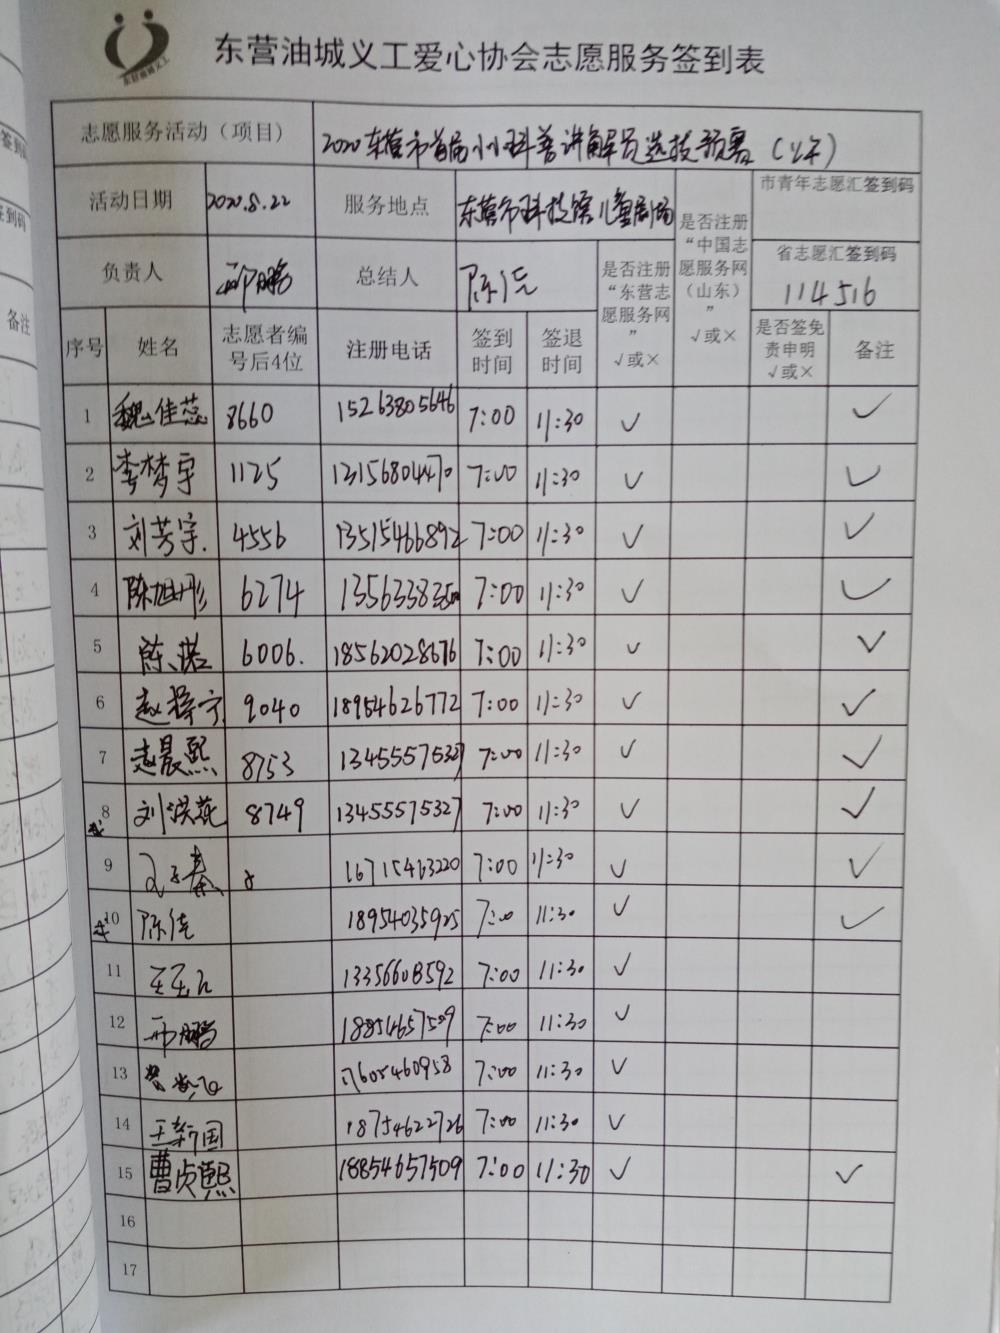 东营油城义工
东营油城义工爱心协会志愿服务签到表
志愿服务活动（项目） 2020东营市首届小小科普讲解员选拔预赛（上午）
活动日期 2020.8.22 服务地点 东营市科技馆儿童剧场 是否注册“中国志愿服务网（山东）”√或× 市青年志愿汇签到码
负责人 邢鹏 总结人 陈 是否注册“东营志愿服务网”√或× 省志愿汇签到码 114516
序号 姓名 志愿者编号后4位 注册电话 签到时间 签退时间 是否签免责申明√或× 备注
1 魏佳蕊 8660 15263805646 7:00 11:30 √ √
2 李梦宇 1125 13156804470 7:00 11:30 √ √
3 刘芳宇. 4556 13515466892 7:00 11:30 √ √
4 陈旭彤 6274 7:00 11:30 √ √
5 陈诺 6006. 18562028676 7:00 11:30 √ √
6 赵梓宁 9040 18954626772 7:00 11:30 √ √
7 赵晨熙 8753 13455575327 7:00 11:30 √ √
8 刘洪燕 8749 13455575327 7:00 11:30 √ √
9 16715463220 7:00 11:30 √ √
10 陈 18954035925 7:00 11:30 √ √
11 13356608592 7:00 11:30 √
12 邢鹏 18854657509 7:00 11:30 √
13 17605460958 7:00 11:30 √
14 王新国 18754622726 7:00 11:30 √
15 曹贞熙 18854657509 7:00 11:30 √ √
16
17
签到码
备注